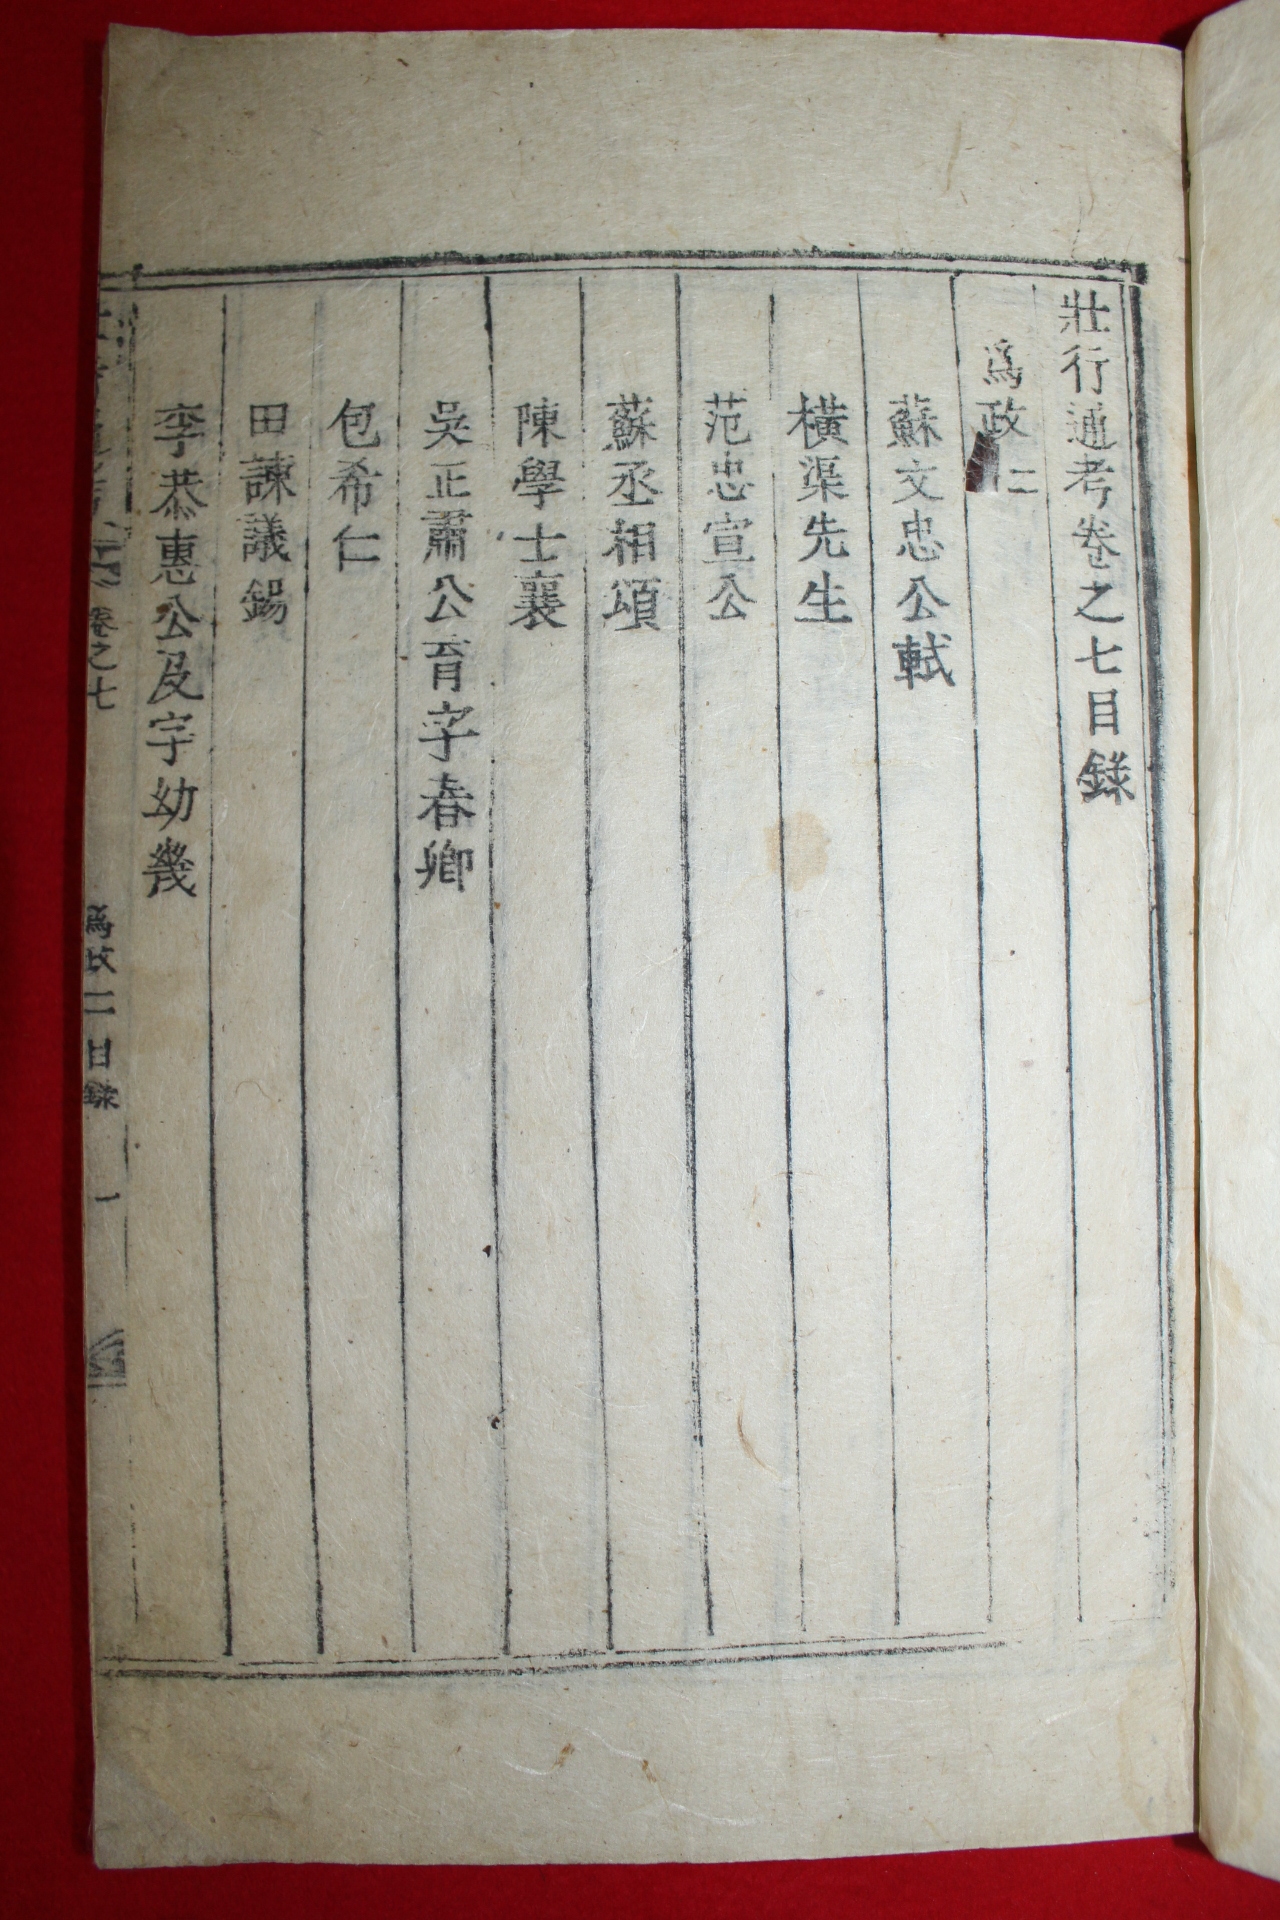 壯行通考卷之七目録
爲政二
蘇文忠公軾
橫渠先生
范忠宣公
蘇丞相頌
陳學士襄
吳正肅公育字春卿
包希仁
田諫議錫
李恭惠公及字幼幾
卷之七 爲政二目録 一